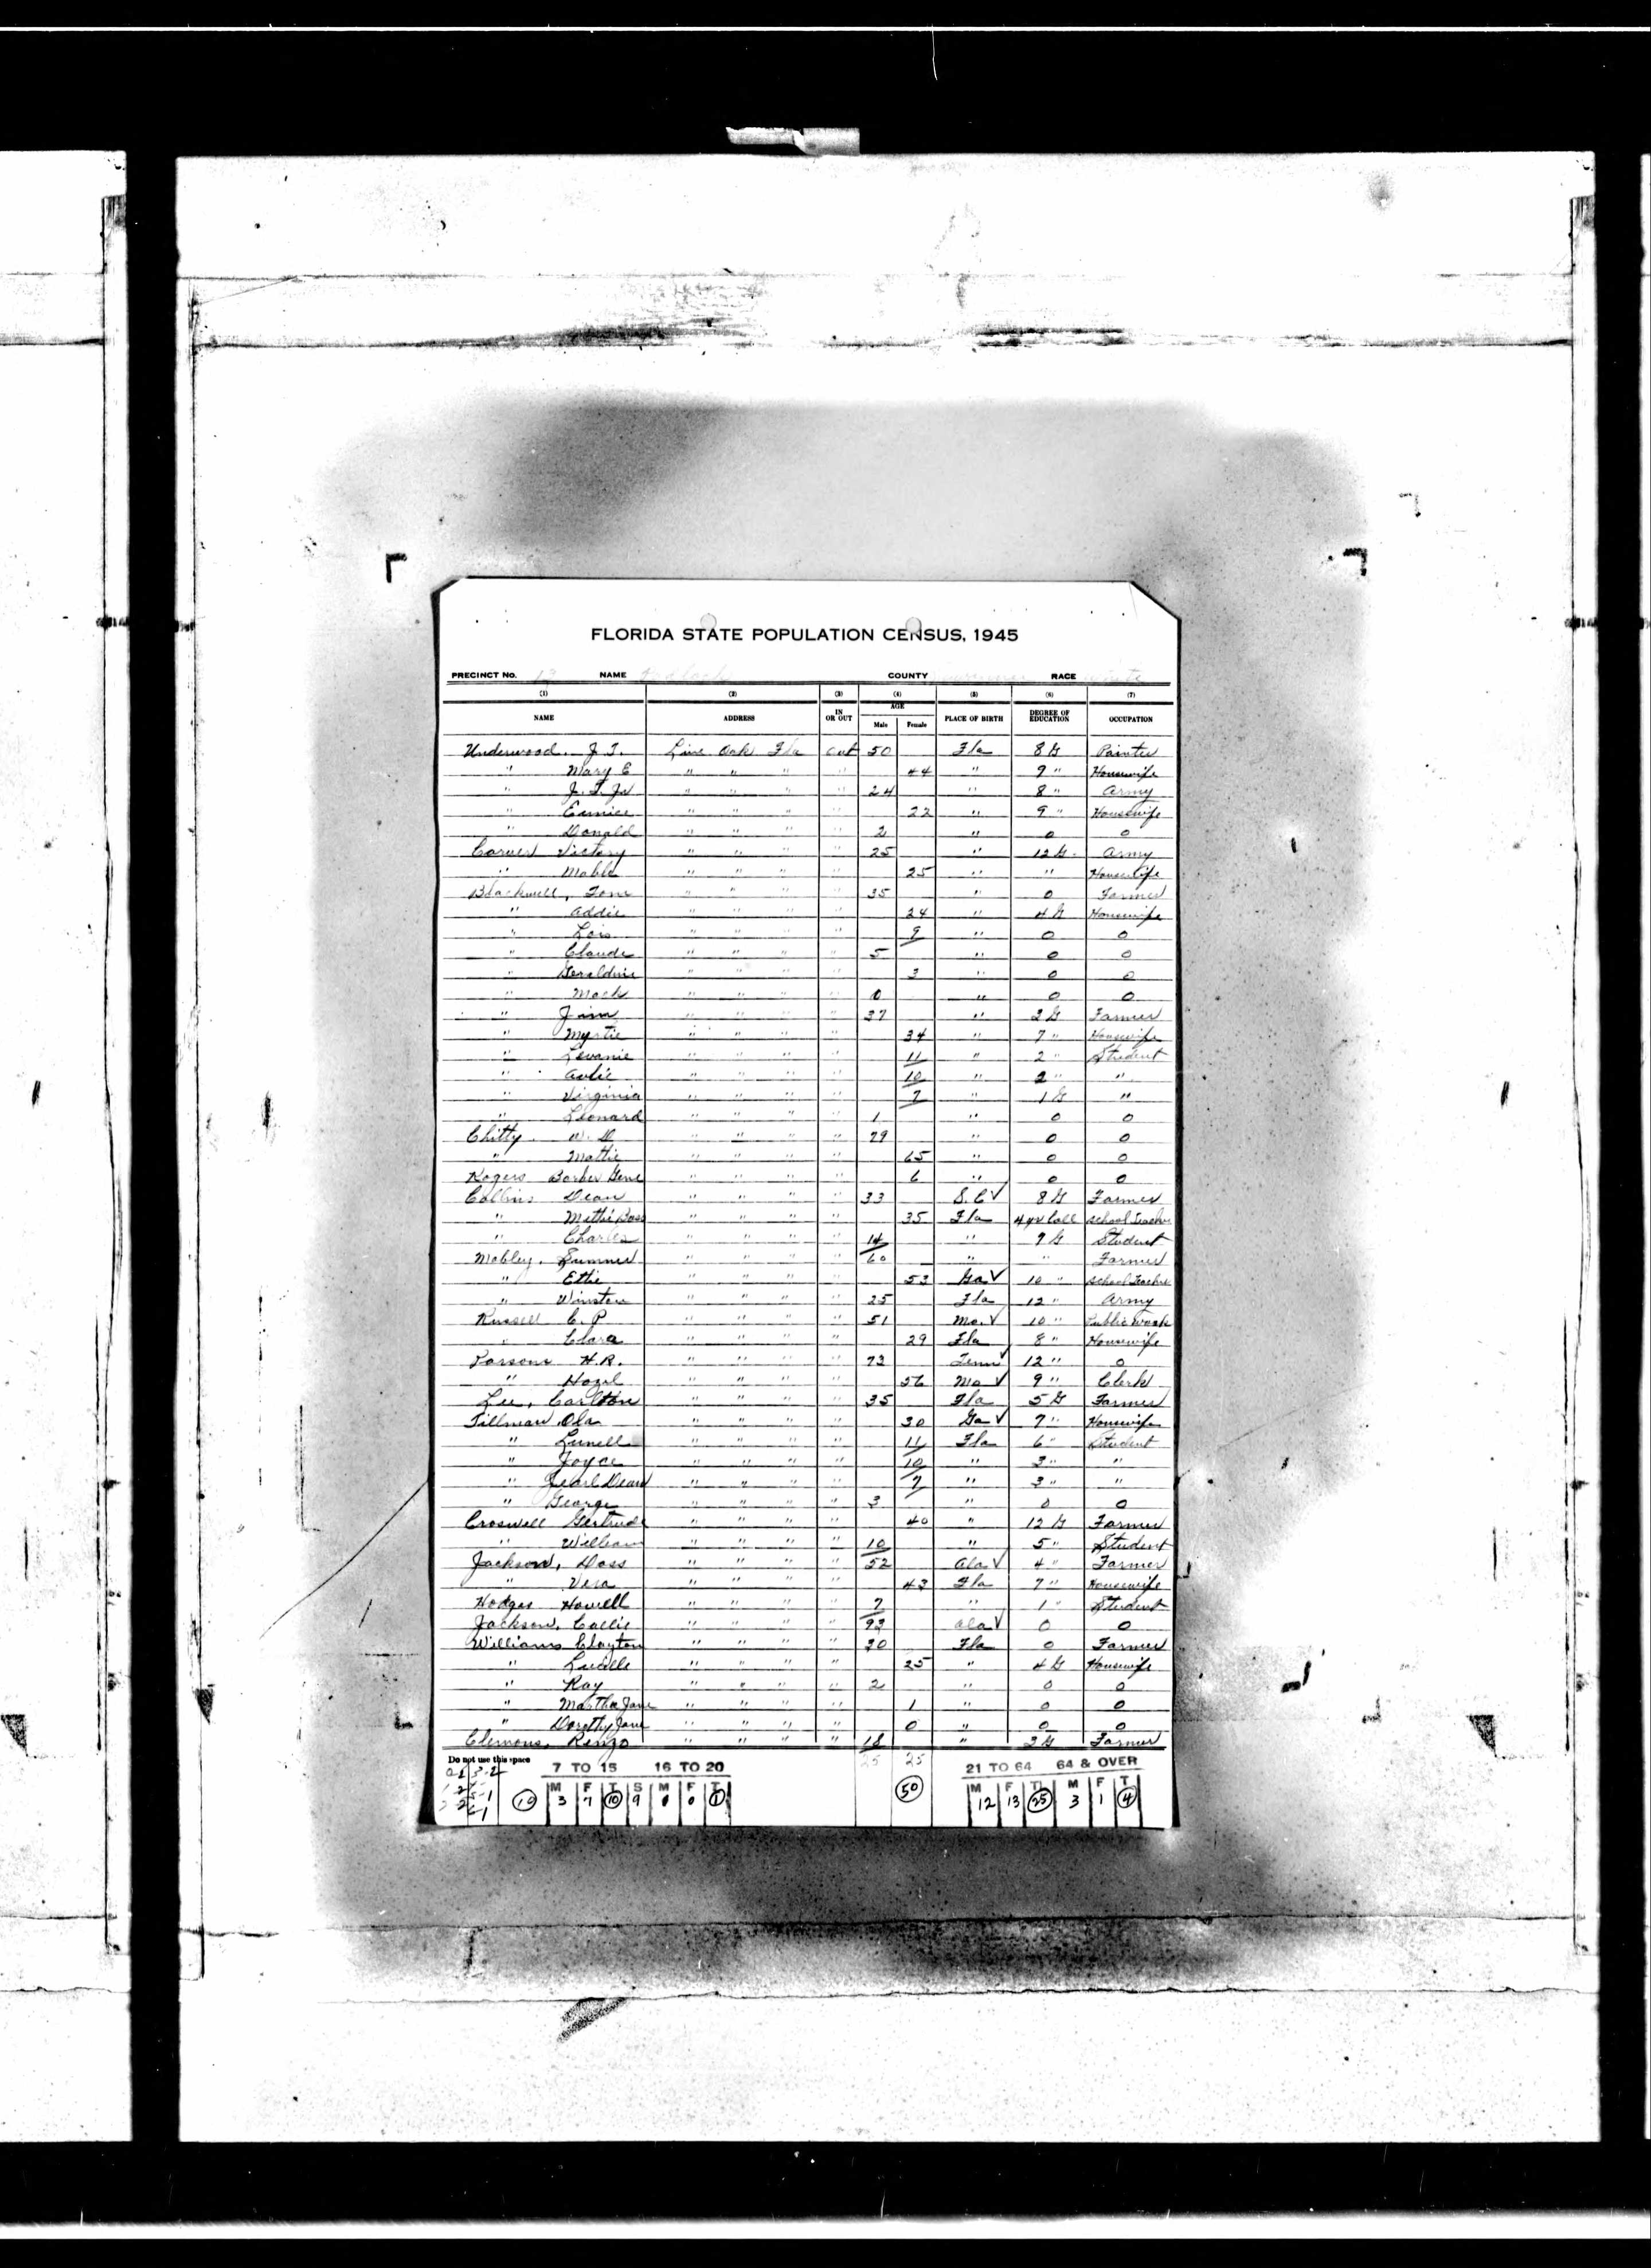 FLORIDA STATE POPULATION CENSUS, 1945
PRECINCT No. NAME COUNTY RACE
(1) (2) (3) (4) (5) (6) (7)
NAME ADDRESS IN OR OUT AGE Male Female PLACE OF BIRTH DEGREE OF EDUCATION OCCUPATION
Underwood. J. T. Live Oak Fla out 50 Fla 8 G Painter
" Mary E " " " " 44 " 9 " Housewife
" J. T. Jr " " " " 24 " 8 " Army
" Eunice " " " " 22 " 9 " Housewife
" Donald " " " " 2 " 0 0
Carver Victory " " " " 25 " 12 G. Army
" Mable " " " " 25 " " Housewife
Blackwell, Tom " " " " 35 " 0 Farmer
" Addie " " " " 24 " 4 G Housewife
" Lois " " " " 9 " 0 0
" Claude " " " " 5 " 0 0
" Geraldine " " " " 3 " 0 0
" Mack " " " " 0 " 0 0
" Jim " " " " 37 " 2 G Farmer
" Myrtie " " " " 34 " 7 " Housewife
" Levanie " " " " 11 " 2 " Student
" " " " " 10 " 2 " "
" Virginia " " " " 7 " 1 G "
" Leonard " " " " 1 " 0 0
Chitty W. D " " " " 79 " 0 0
" Mattie " " " " 65 " 0 0
Rogers Barber Gene " " " " 6 " 0 0
Collins Dean " " " " 33 S. C √ 8 G Farmer
" " " " " 35 Fla 4 yr Coll School Teacher
" Charles " " " " 14 " 9 G Student
Mobley. Sumner " " " " 60 " " Farmer
" Ettie " " " " 53 Ga √ 10 " School Teacher
" Winston " " " " 25 Fla 12 " Army
Russell C. P " " " " 51 Mo. √ 10 " Public Work
" Clara " " " " 29 Fla 8 " Housewife
Parsons H. R. " " " " 73 Tenn √ 12 " 0
" Hazel " " " " 56 Mo √ 9 " Clerk
Lee, Carlton " " " " 35 Fla 5 G Farmer
Tillman Ola " " " " 30 Ga √ 7 " Housewife
" Lunell " " " " 11 Fla 6 " Student
" Joyce " " " " 10 " 3 " "
" Pearl Dean " " " " 7 " 3 " "
" George " " " " 3 " 0 0
Croswell Gertrude " " " " 40 " 12 G Farmer
" William " " " " 10 " 5 " Student
Jackson, Doss " " " " 52 Ala √ 4 " Farmer
" Vera " " " " 43 Fla 7 " Housewife
Hodges Howell " " " " 7 " 1 " Student
Jackson, Callie " " " " 93 Ala √ 0 0
Williams Clayton " " " " 30 Fla 0 Farmer
" Lucille " " " " 25 " 4 G Housewife
" Ray " " " " 2 " 0 0
" Martha Jane " " " " 1 " 0 0
" Dorothy Jane " " " " 0 " 0 0
Clemons, Renzo " " " " 18 " 3 G Farmer
Do not use this space 25 25
7 TO 15 16 TO 20 21 TO 64 64 & OVER
M F T S M F T M F T M F T
10 3 7 10 9 1 0 1 50 12 13 25 3 1 4